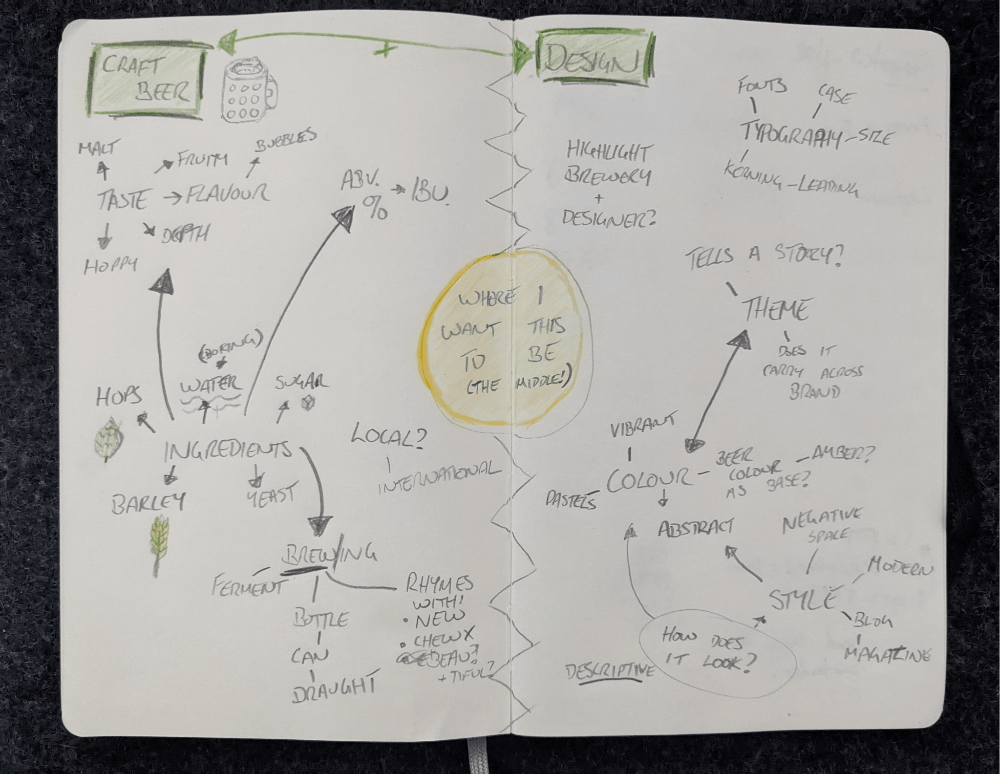 CRAFT
BEER
DESIGN
MALT
FRUITY
BUBBLES
TASTE
FLAVOUR
DEPTH
HOPPY
ABV.
%
IBU.
HOPS
(BORING)
WATER
SUGAR
INGREDIENTS
BARLEY
YEAST
LOCAL?
INTERNATIONAL
BREWING
FERMENT
BOTTLE
CAN
DRAUGHT
RHYMES
WITH!
• NEW
• CHEW X
BEAU?
+ TIFUL?
WHERE I
WANT THIS
TO BE
(THE MIDDLE!)
HIGHLIGHT
BREWERY
+
DESIGNER?
FONTS
CASE
TYPOGRAPHY - SIZE
KERNING - LEADING
TELLS A STORY?
THEME
DOES IT
CARRY ACROSS
BRAND
VIBRANT
COLOUR
PASTELS
BEER
COLOUR
AS BASE?
AMBER?
ABSTRACT
NEGATIVE
SPACE
MODERN
STYLE
BLOG
MAGAZINE
HOW DOES
IT LOOK?
DESCRIPTIVE